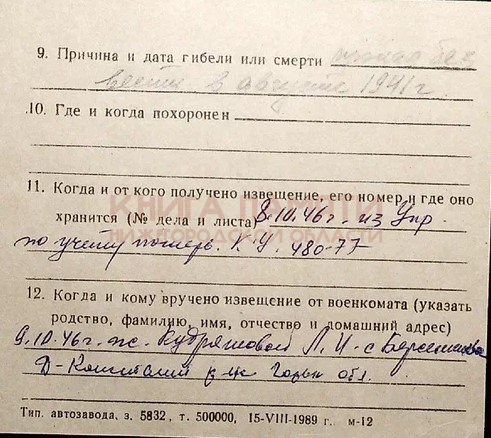 9. Причина и дата гибели или смерти пропал без
вести в августе 1941 г.
10. Где и когда похоронен
11. Когда и от кого получено извещение, его номер и где оно
хранится (№ дела и листа) 8.10.46 г. из Упр.
по учету потерь. К У. 480-77
КНИГА ПАМЯТИ
НИЖЕГОРОДСКОЙ ОБЛАСТИ
12. Когда и кому вручено извещение от военкомата (указать
родство, фамилию, имя, отчество и домашний адрес)
9.10.46 г. ж. Кудряшовой Л. И. с
Д-Константин Горьк обл.
Тип. автозавода, з. 5832, т. 500000, 15-VIII-1989 г. м-12